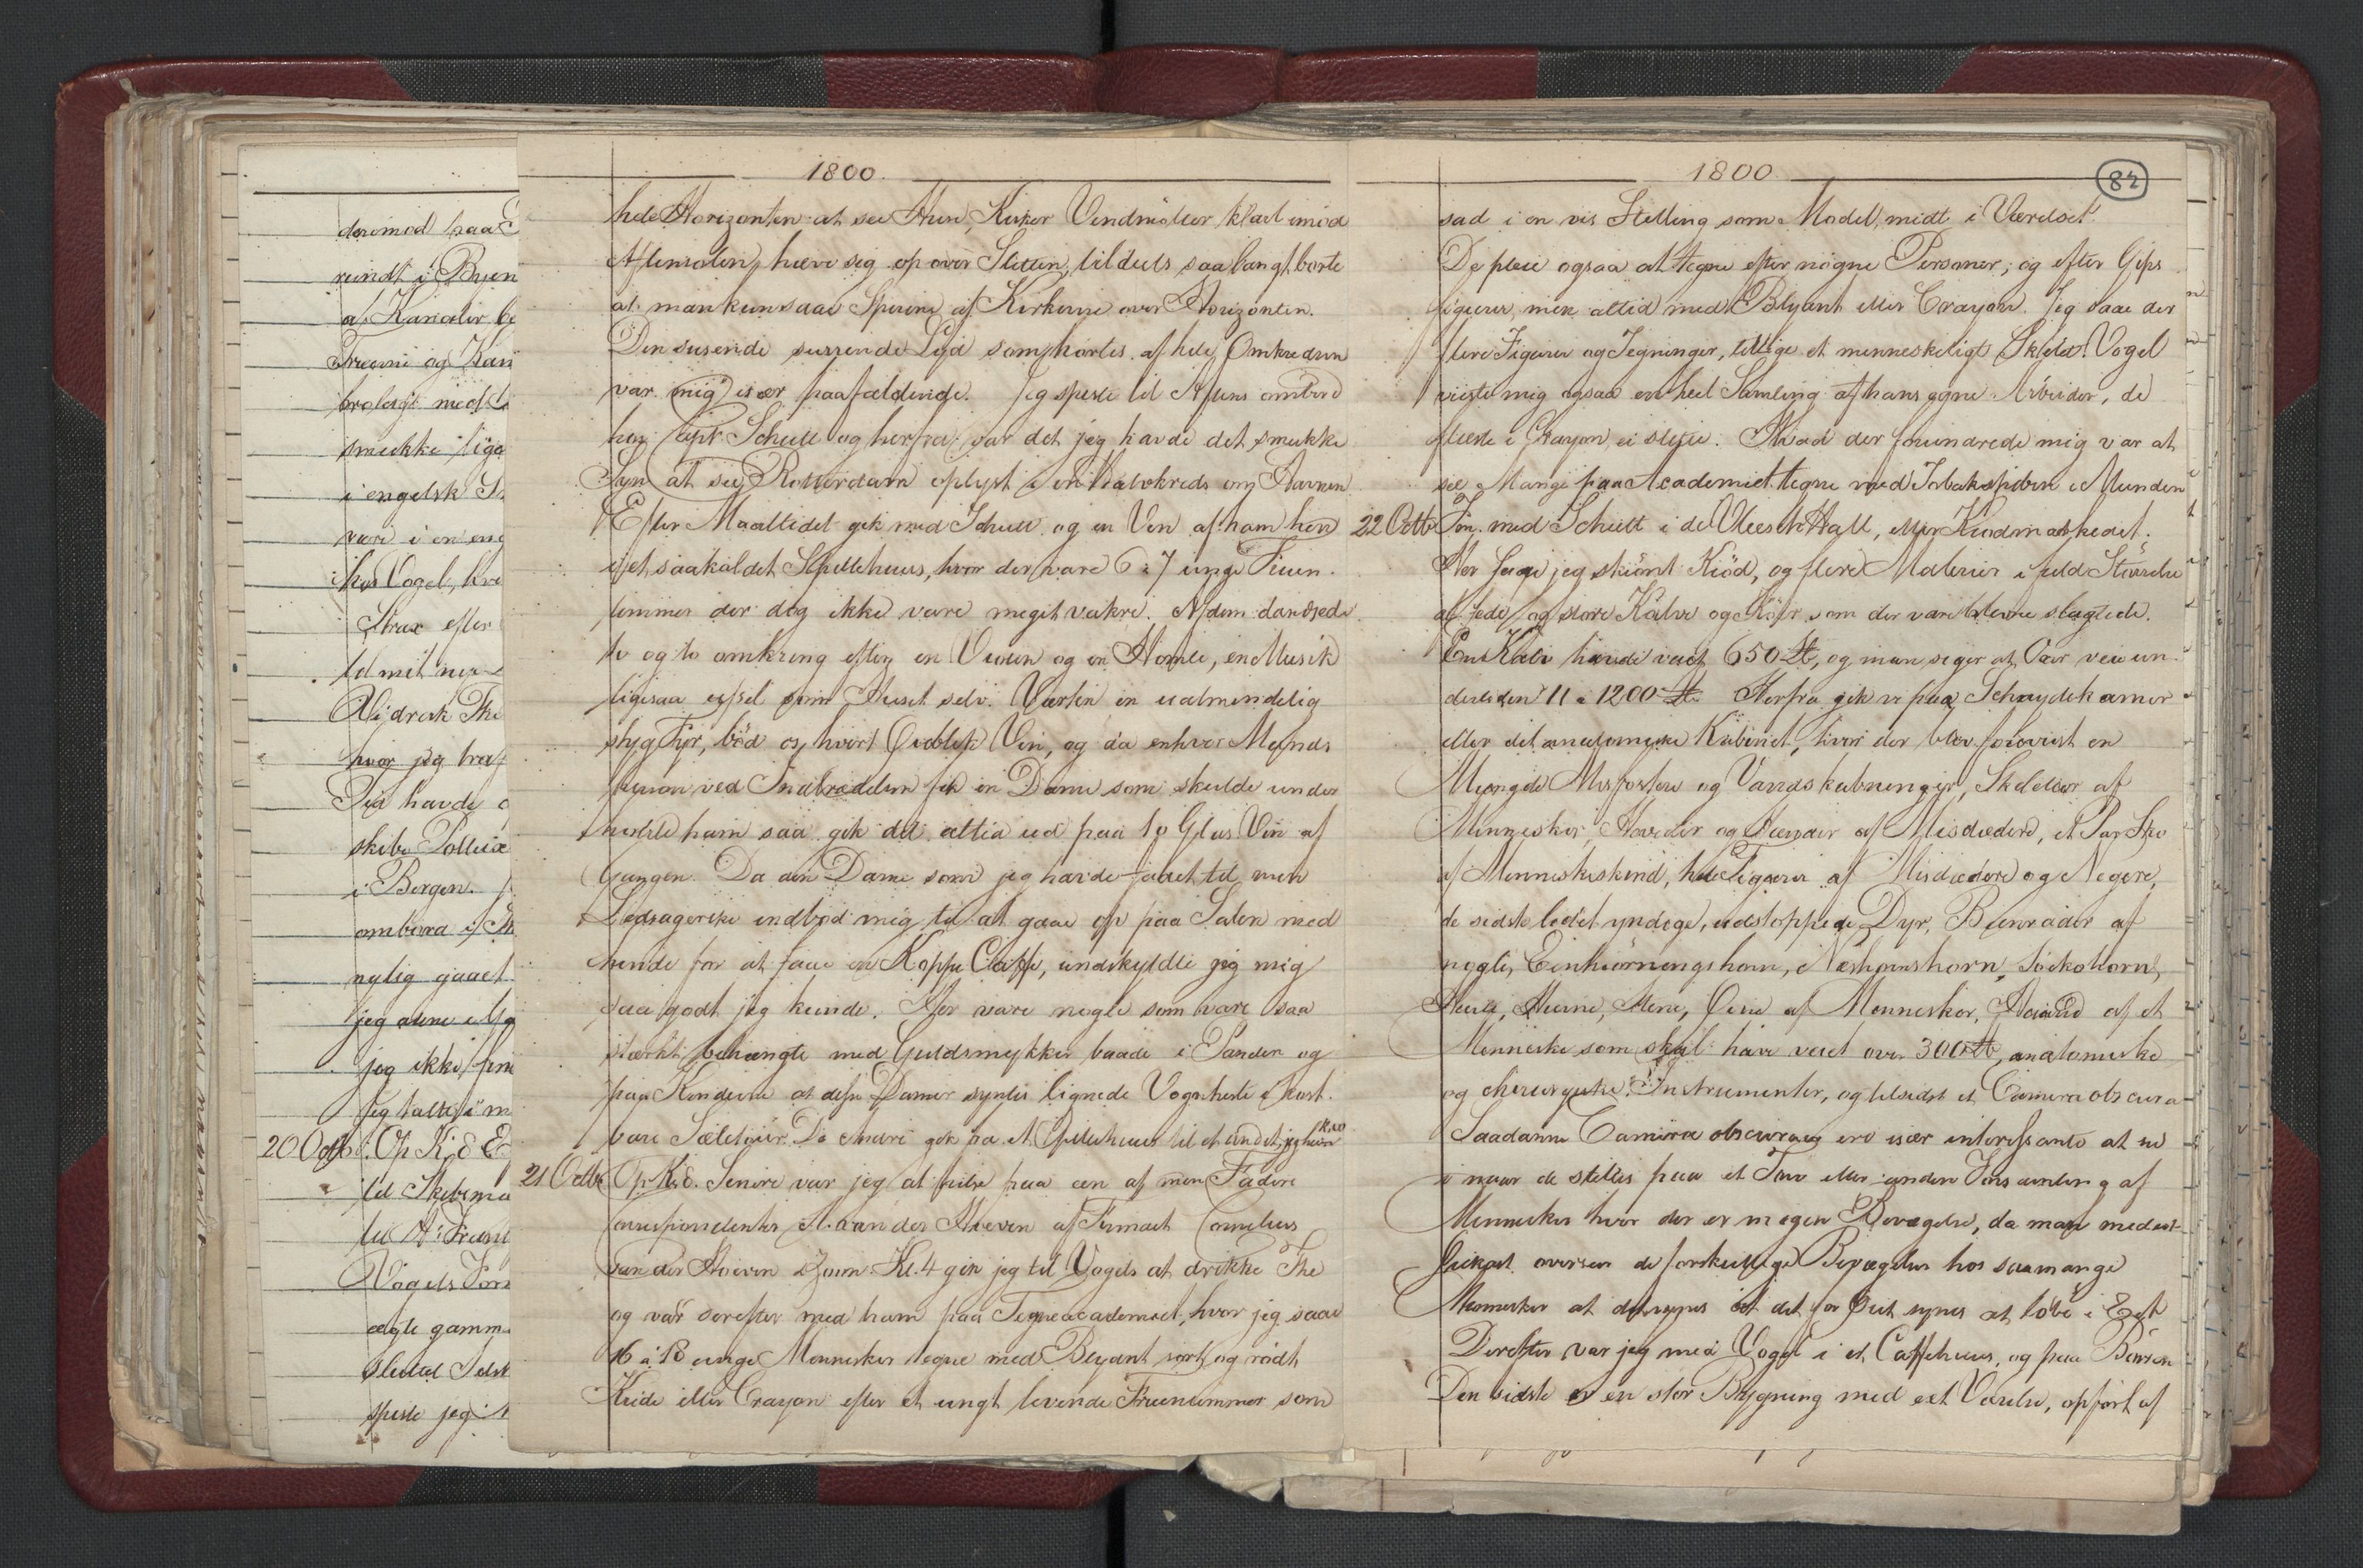 derimod paa
rundt i Byen
af Kanaler be
Træerne og Kan
brolagt med
smukke lige
i engelsk
være i en eng
hos Vogel, hvo
Strax efter
til mit
hvor jeg traf
Da havde
skibe
i Bergen.
ombord i
nylig gaaet
jeg alene
jeg ikke
Jeg talte
20 Octb. Op Kl. 8
til
til
Vogels
ægte gamm
sluttet Selsk
spiste jeg
1800.
hele Horizonten at see Huse, Kirker Vendmøller klart imod
Aftensolen, hæve sig op over Sletten, tildeels saa langt borte
at man kun saae Spirene af Kirkerne over Horizonten.
Den susende surrende Lyd som hørtes af hele Omkredsen
var mig især paafaldende. Jeg spiste til Aftens ombord
hos Capt Schutt og herfra var det jeg havde det smukke
Syn at see Rotterdam oplyst i en Halvkreds om Havnen
Efter Maaltidet gik med Schutt og en Ven af ham hen
i et saakaldet Spillehuus, hvor der vare 6 à 7 unge Fruen-
timmer der dog ikke vare meget vakre. Af dem dandsede
to og to omkring efter en Violin og en Homle, en Musik
ligesaa ussel som Huset selv. Værten en ualmindelig
styg Fyr, bød os hvert Øieblik Vin, og da enhver Mands
person ved Indtrædelsen fik en Dame som skulde under
holde ham saa gik det altid ud paa 10 Glas Vin af
Gangen. Da den Dame som jeg havde faaet til min
Ledsagerske indbød mig til at gaae op paa Salen med
hende for at faae en Koppe Caffe, undskyldte jeg mig
saa godt jeg kunde. Her vare nogle som vare saa
stærkt behængte med Guldsmykker baade i Panden og
paa Kinderne at disse Damer syntes lignede Vognheste i kost-
bare Sæletøier. De Andre gik fra et Spillehuus til et andet, jeg hiem Kl. 10
21 Octbr Op Kl. 8. Senere var jeg at hilse paa een af min Faders
Correspondenter H. van der Hoeven af Firmaet Cornelius
van der Hoeven & Zoon. Kl. 4 gik jeg til Vogels at drikke The
og var derefter med ham paa Tegneacademiet, hvor jeg saae
16 à 18 unge Mennesker tegne med Blyant sort og rødt
Kride eller Crayon efter et ungt levende Fruentimmer som
1800
82
sad i en vis Stilling som Model, midt i Værelset
De pleie ogsaa at tegne efter nøgne Personer, og efter Gips
figurer, men altid med Blyant eller Crayon. Jeg saae der
flere Figurer og Tegninger, tillige et menneskeligt Skelet. Vogel
viiste mig ogsaa en heel Samling af hans egne Arbeider, de
fleeste i Crayon, ei slette. Hvad der forundrede mig var at
see Mange paa Academiet tegne med Tobakspiben i Munden
22 Octbr Fm. med Schutt i de Vleesch Hall, eller Kiødmarkedet.
Her saae jeg skiønt Kiød, og flere Malerier i fuld Størrelse
af fede og store Kalve og Køer som der vare blevne slagtede.
En Kalv havde veiet 650 ℔, og man siger at Oxer veie un-
dertiden 11 à 1200 ℔. Herfra gik vi paa Schnydekamer
eller det anatomiske Kabinet, hvor der blev foreviist en
Mængde Misfostere og Vanskabninger, Skeletter af
Mennesker, Hoveder og Hænder af Misdædere, et Par Skoe
af Menneskeskind, hele Figurer af Misdædere og Negere,
de sidste lidet yndige, udstoppede Dyr, Beenrader af
nogle, Eenhiørningshorn, Næshornshorn,
Hierner, Stene, Øine af Mennesker, Haand af et
Menneske som skal have veiet over 300 ℔, anatomiske
og chirurgiske Instrumenter, og tilsidst et Camera obscura
Saadanne Camera obscura ere især interessante at se
i naar de stilles paa et Torv eller anden Forsamling af
Mennesker hvor der er megen Bevægelse, da man med eet
Øiekast oversee de forskiellige Bevægelser hos saamange
Mennesker at det synes at det for Øiet synes at løbe i Eet
Derefter var jeg med Vogel i et Caffehuus, og paa Børsen
Den sidste er en stor Bygning med eet Værelse, opført af